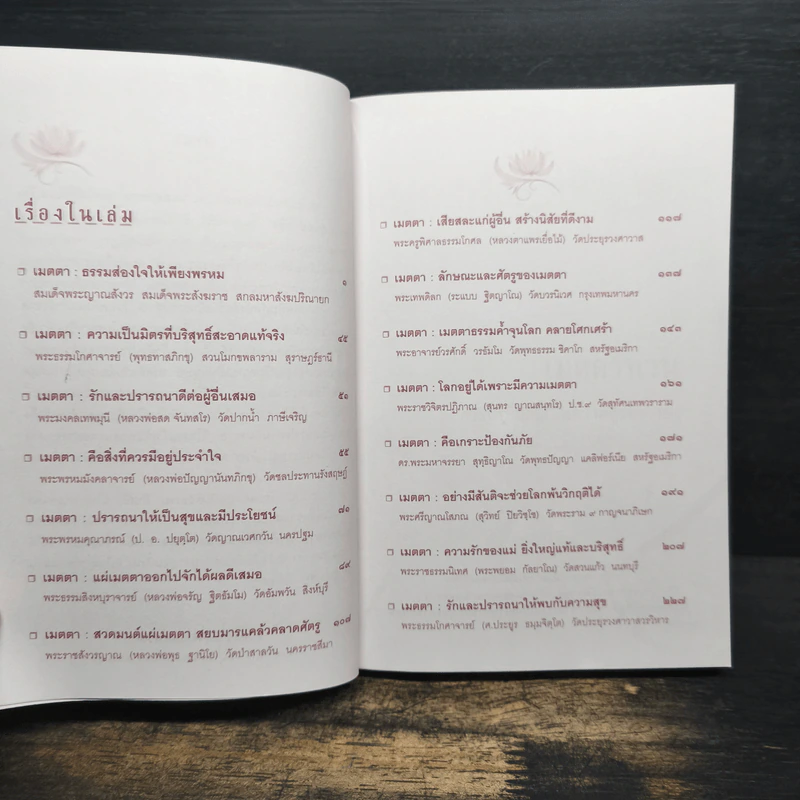 เรื่องในเล่ม
❒ เมตตา : ธรรมส่องใจให้เพียงพรหม ๑
สมเด็จพระญาณสังวร สมเด็จพระสังฆราช สกลมหาสังฆปริณายก
❒ เมตตา : ความเป็นมิตรที่บริสุทธิ์สะอาดแท้จริง ๔๕
พระธรรมโกศาจารย์ (พุทธทาสภิกขุ) สวนโมกขพลาราม สุราษฎร์ธานี
❒ เมตตา : รักและปรารถนาดีต่อผู้อื่นเสมอ ๕๑
พระมงคลเทพมุนี (หลวงพ่อสด จันทสโร) วัดปากน้ำ ภาษีเจริญ
❒ เมตตา : คือสิ่งที่ควรมีอยู่ประจำใจ ๕๕
พระพรหมมังคลาจารย์ (หลวงพ่อปัญญานันทภิกขุ) วัดชลประทานรังสฤษฎ์
❒ เมตตา : ปรารถนาให้เป็นสุขและมีประโยชน์ ๘๑
พระพรหมคุณาภรณ์ (ป. อ. ปยุตฺโต) วัดญาณเวศกวัน นครปฐม
❒ เมตตา : แผ่เมตตาออกไปจักได้ผลดีเสมอ ๘๙
พระธรรมสิงหบุราจารย์ (หลวงพ่อจรัญ ฐิตธัมโม) วัดอัมพวัน สิงห์บุรี
❒ เมตตา : สวดมนต์แผ่เมตตา สยบมารแคล้วคลาดศัตรู ๑๐๗
พระราชสังวรญาณ (หลวงพ่อพุธ ฐานิโย) วัดป่าสาลวัน นครราชสีมา
❒ เมตตา : เสียสละแก่ผู้อื่น สร้างนิสัยที่ดีงาม ๑๑๗
พระครูพิศาลธรรมโกศล (หลวงตาแพรเยื่อไม้) วัดประยุรวงศาวาส
❒ เมตตา : ลักษณะและศัตรูของเมตตา ๑๓๗
พระเทพดิลก (ระแบบ ฐิตญาโณ) วัดบวรนิเวศ กรุงเทพมหานคร
❒ เมตตา : เมตตาธรรมค้ำจุนโลก คลายโศกเศร้า ๑๔๓
พระอาจารย์วรศักดิ์ วรธัมโม วัดพุทธธรรม ชิคาโก สหรัฐอเมริกา
❒ เมตตา : โลกอยู่ได้เพราะมีความเมตตา ๑๖๑
พระราชวิจิตรปฏิภาณ (สุนทร ญาณสุนฺทโร) ป.ธ.๙ วัดสุทัศนเทพวราราม
❒ เมตตา : คือเกราะป้องกันภัย ๑๘๑
ดร.พระมหาจรรยา สุทฺธิญาโณ วัดพุทธปัญญา แคลิฟอร์เนีย สหรัฐอเมริกา
❒ เมตตา : อย่างมีสันติจะช่วยโลกพ้นวิกฤติได้ ๑๙๑
พระศรีญาณโสภณ (สุวิทย์ ปิยวิชฺโช) วัดพระราม ๙ กาญจนาภิเษก
❒ เมตตา : ความรักของแม่ ยิ่งใหญ่แท้และบริสุทธิ์ ๒๐๗
พระราชธรรมนิเทศ (พระพยอม กัลยาโณ) วัดสวนแก้ว นนทบุรี
❒ เมตตา : รักและปรารถนาให้พบกับความสุข ๒๒๗
พระธรรมโกศาจารย์ (ศ.ประยูร ธมฺมจิตฺโต) วัดประยุรวงศาวาสวรวิหาร